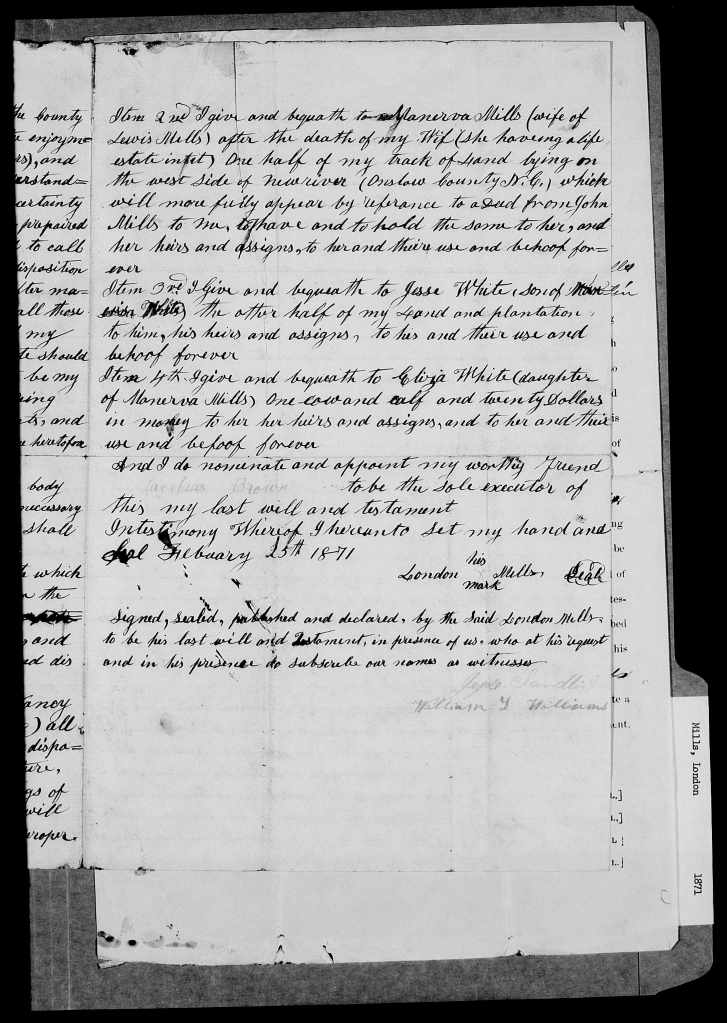 the County
e enjoyme=
rs), and
erstand=
certainty
prepaired
to call
disposition
fter ma=
all those
my
te should
be my
ing
ts, and
e heretofore
body
necessary
shall
te which
n the
and
nd dis
fancy
) all
dispo=
ture,
gs of
will
proper.
Item 2nd I give and bequath to Manerva Mills (wife of
Lewis Mills) after the death of my Wif (she haveing a life
estate in it) One half of my track of Land lying on
the west side of New river (Onslow County N.C.) which
will more fully appear by referance to a Deed from John
Mills to me, to have and to hold the same to her, and
her heirs and assigns, to her and thiere use and behoof for=
ever
Item 3rd I Give and bequeath to Jesse White (son of
White) the other half of my Land and plantation,
to him, his heirs and assigns, to his and their use and
behoof forever
Item 4th I give and bequeath to Eliza White (daughter
of Manerva Mills) One cow and calf and twenty Dollars
in money to her her heirs and assigns, and to her and their
use and behoof forever
And I do nominate and appoint my worthy friend
Brown to be the sole executor of
this my last will and testament
In testimony Whereof I hereunto set my hand and
Seal Febuary 25th 1871
his
London Mills. Seal
mark
Signed, sealed, published and declared, by the Said London Mills.
to be his last will and testament, in presence of us. who at his request
and in his presence do subscribe our names as witnesses
William Y Williams
of
ng
be
of
tes-
bed
his
te a
ant.
L.]
L.]
L.]
Mills, London
1871